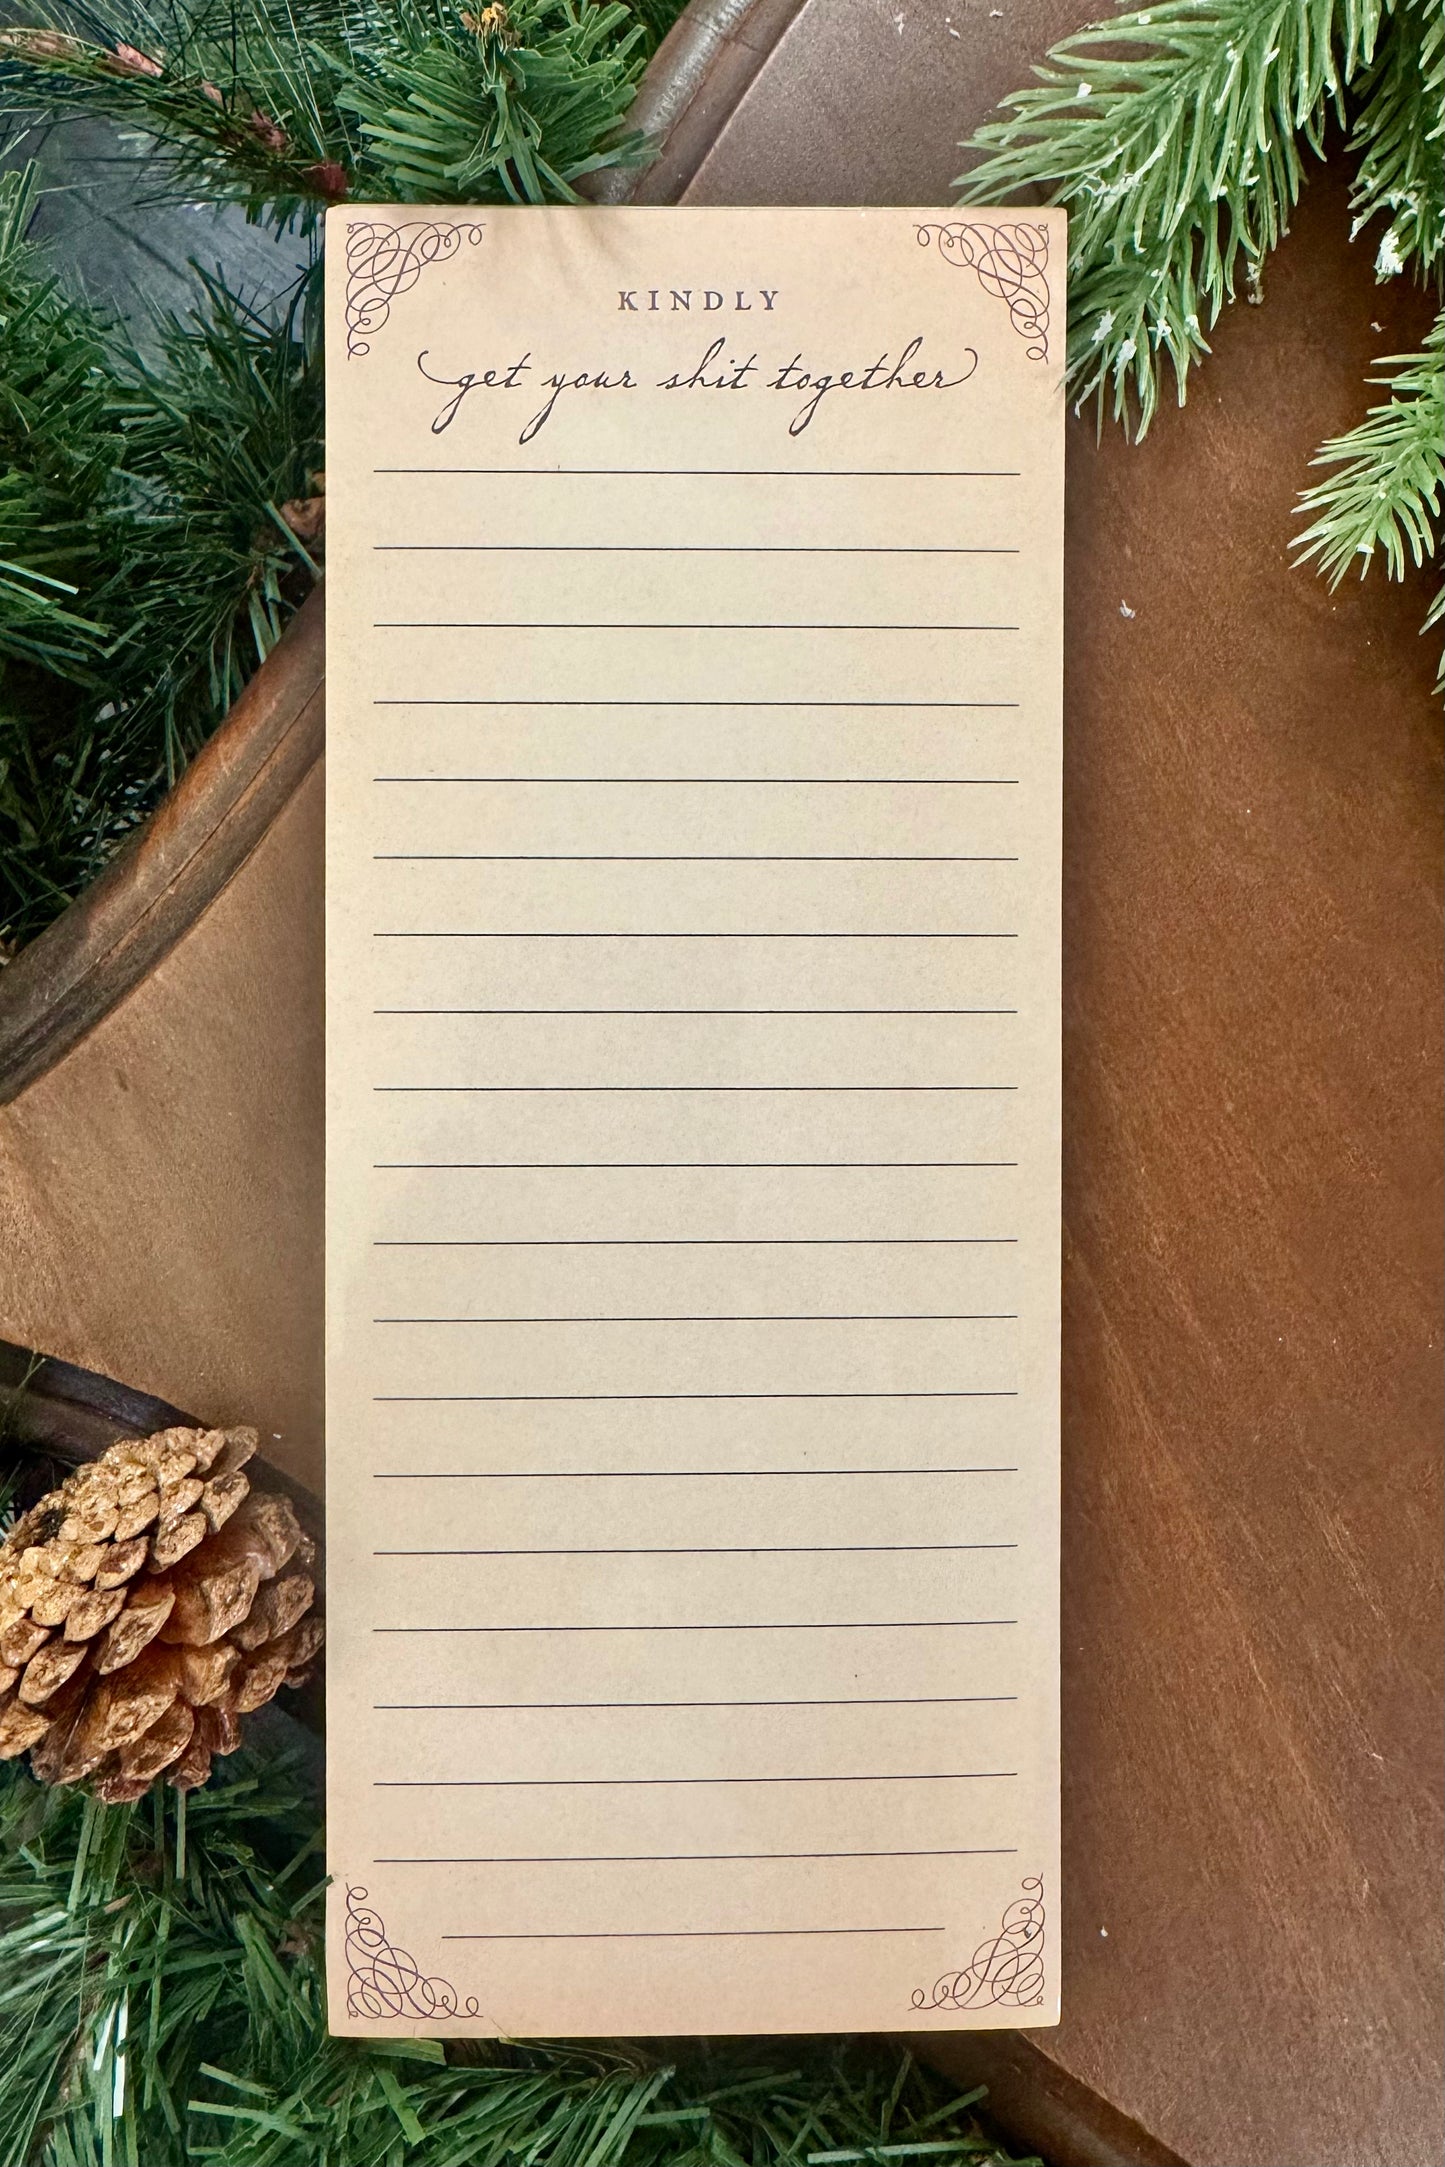 KINDLY
get your shit together